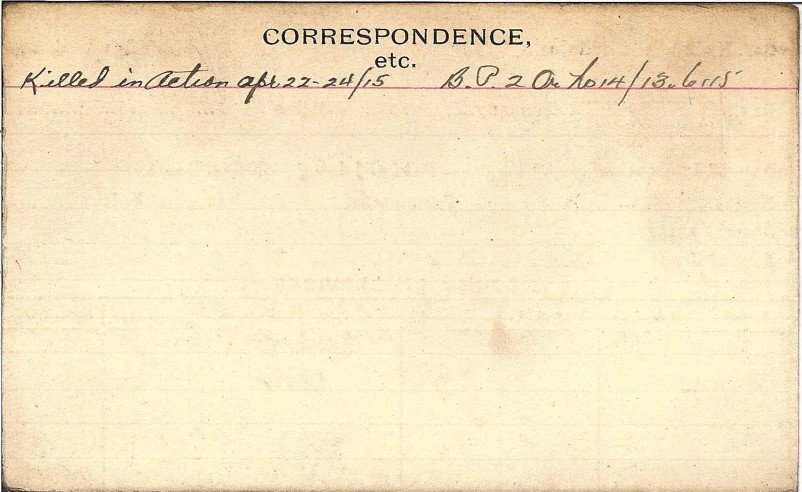 CORRESPONDENCE,
etc.
Killed in Action Apr 22-24/15 B. P. 2 Or No 14/13.6.15